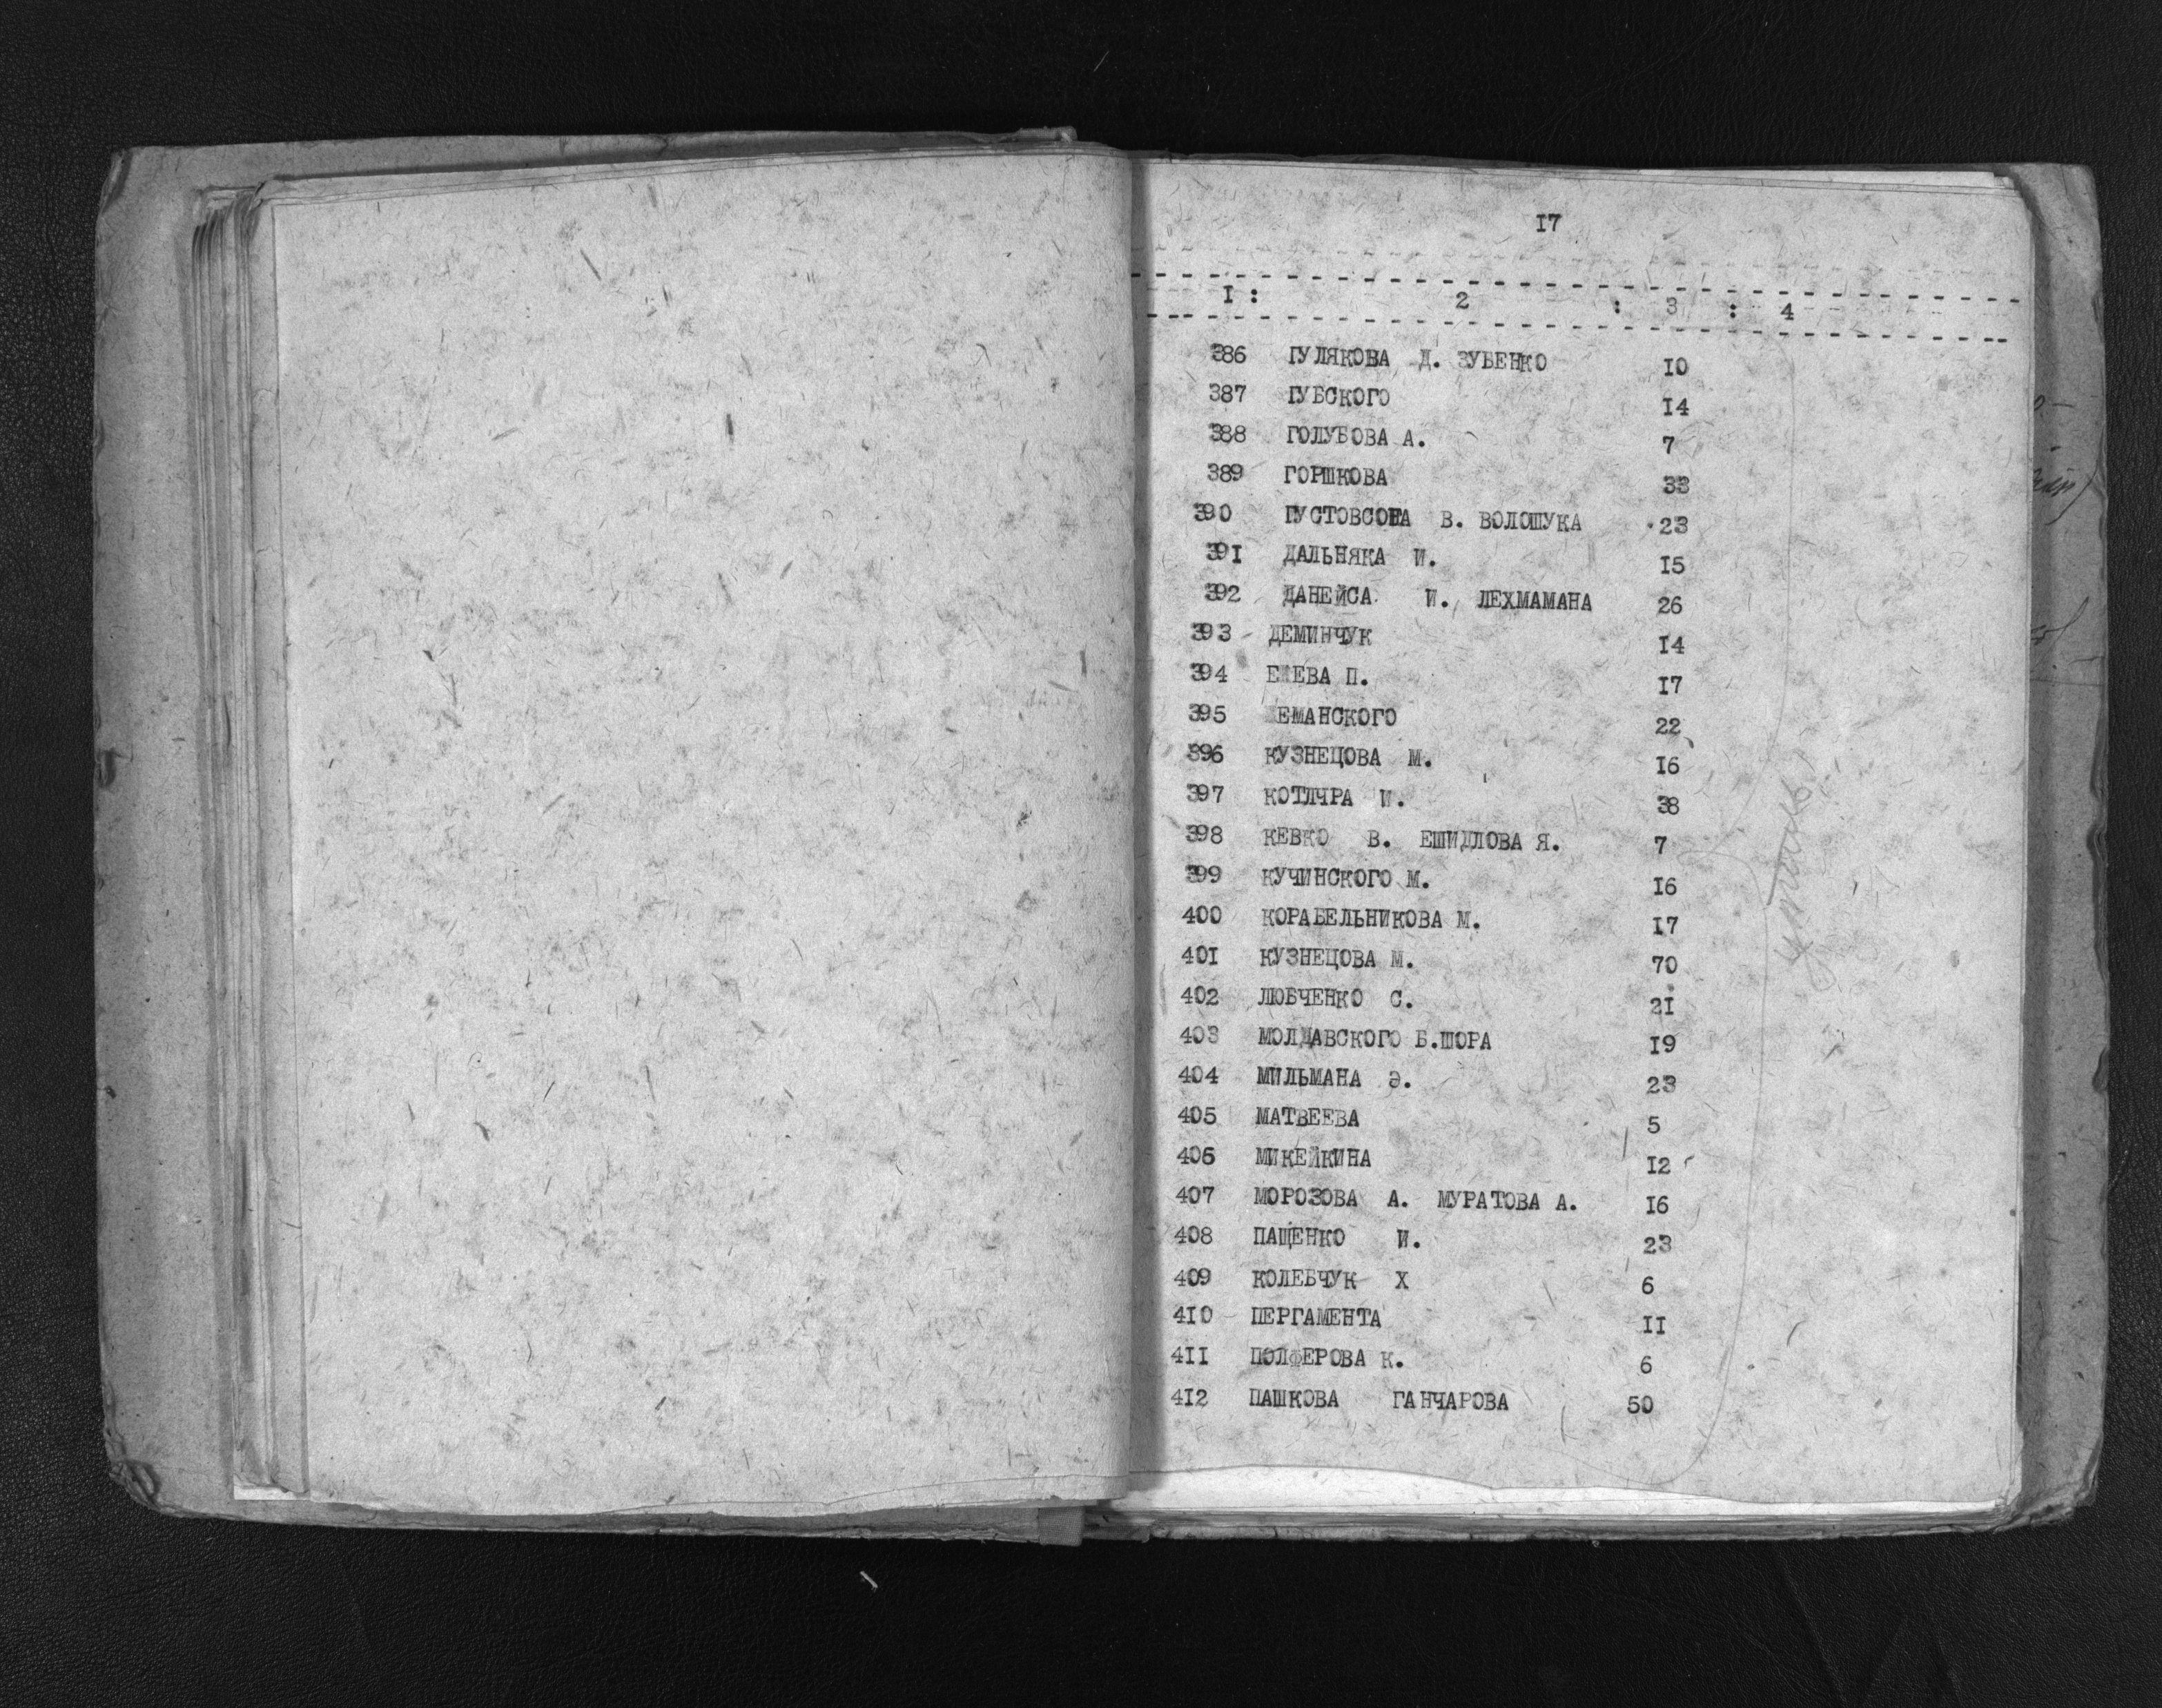 17
I : 2 : 3 : 4
386 ГУЛЯКОВА Д. ЗУБЕНКО 10
387 ГУБСКОГО 14
388 ГОЛУБОВА А. 7
389 ГОРШКОВА 33
390 ГУСТОВСОВА В. ВОЛОШУКА 23
391 ДАЛЬНЯКА И. 15
392 ДАНЕЙСА И. ЛЕХМАМАНА 26
393 ДЕМИНЧУК 14
394 ЕЖЕВА П. 17
395 ЖЕМАНСКОГО 22
396 КУЗНЕЦОВА М. 16
397 КОТЛЧРА И. 38
398 КЕВКО В. ЕШИДЛОВА Я. 7
399 КУЧИНСКОГО М. 16
400 КОРАБЕЛЬНИКОВА М. 17
401 КУЗНЕЦОВА М. 70
402 ЛЮБЧЕНКО С. 21
403 МОЛДАВСКОГО Б.ШОРА 19
404 МИЛЬМАНА Э. 23
405 МАТВЕЕВА 5
406 МИКЕЙКИНА 12
407 МОРОЗОВА А. МУРАТОВА А. 16
408 ПАЩЕНКО И. 23
409 КОЛЕБЧУК Х 6
410 ПЕРГАМЕНТА 11
411 ПОЛФЕРОВА К. 6
412 ПАШКОВА ГАНЧАРОВА 50